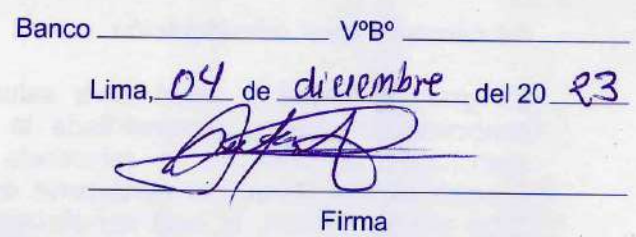 Banco ____________ VºBº ____________
Lima, 04 de diciembre del 20 23
Firma